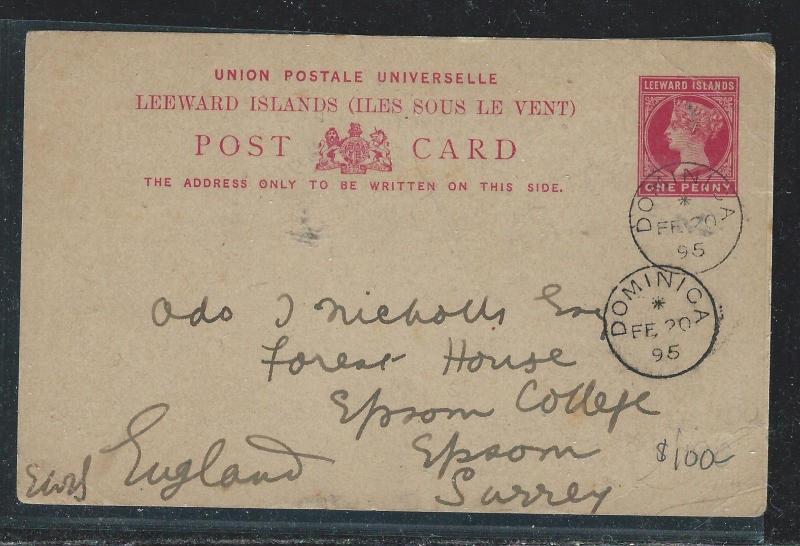 UNION POSTALE UNIVERSELLE
LEEWARD ISLANDS (ILES SOUS LE VENT)
POST CARD
THE ADDRESS ONLY TO BE WRITTEN ON THIS SIDE.
LEEWARD ISLANDS
ONE PENNY
DOMINICA
FE 20
95
DOMINICA
FE 20
95
Odo J Nicholls Esq
Forest House
Epsom College
Epsom
Surrey
England
$100